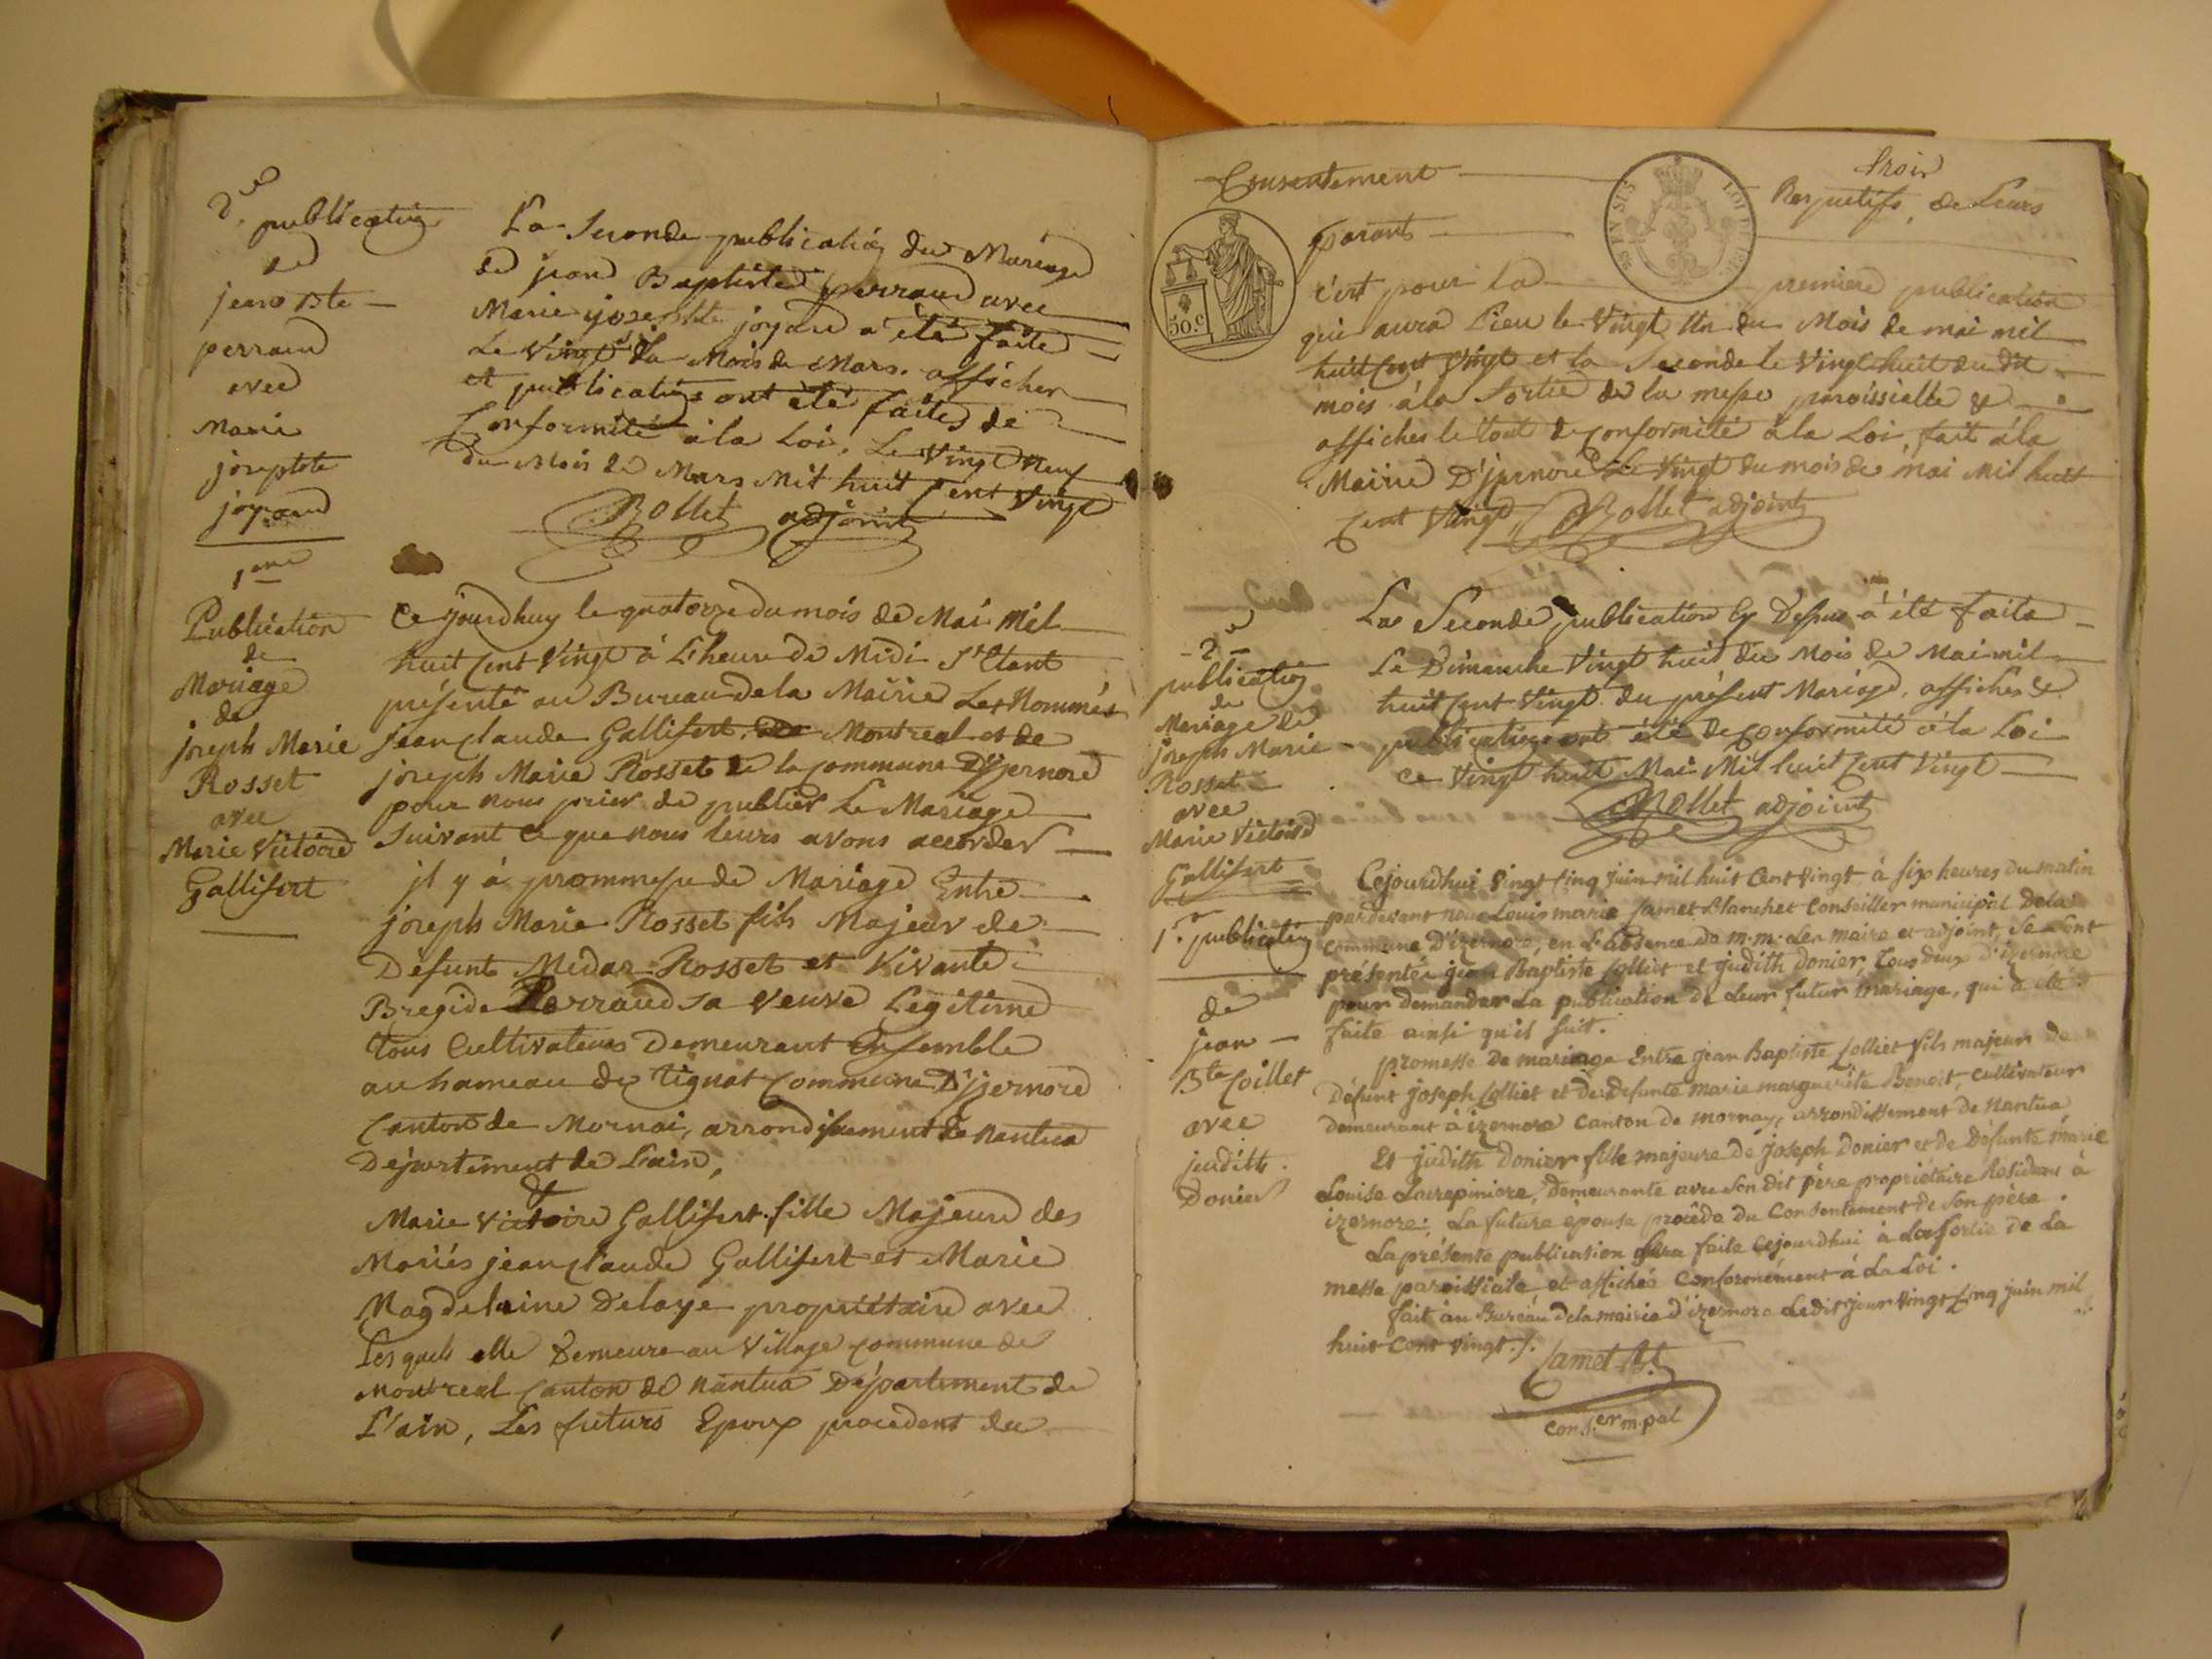 2.e publication
de
jean Bte
perraud
avec
Marie
josephte
joyand
La Seconde publication du Mariage
de jean Baptiste perraud avec
Marie josephte joyand a été faite
Le Vingt du Mois de Mars. afficher
et publications ont été faites de
Conformité à la Loi, Le Vingt neuf
du Mois de Mars Mil huit Cent Vingt
Rollet adjoint
1.ere
Publication
de
Mariage
de
joseph Marie
Rosset
avec
Marie Victoire
Gallifert
Ce jourdhuy le quatorze du mois de Mai Mil
huit Cent Vingt à L'heure de Midi S'Etant
présenté au Bureau de la Mairie Les Nommés
jean Claude Gallifert de Montreal et de
joseph Marie Rosset de la Commune D'jzernore
pour nous prier de publier Le Mariage
Suivant ce que nous leurs avons accorder
jl y à prommesse de Mariage Entre
joseph Marie Rosset fils Majeur de
Défunt Medar Rosset et Vivante
Bregide Perraud sa Veuve Legitime
tous Cultivateurs Demeurant Ensemble
au hameau de Tignat Commune D'jzernore
Canton de Mornai, arrondissement de Nantua
Département de L'ain,
Et
Marie Victoire Gallifert fille Majeure des
Mariés jean Claude Gallifert et Marie
Magdelaine Delaye propriétaire avec
Lesquels elle Demeure au Village Commune de
Montreal Canton de Nantua Département de
L'ain, Les futurs Epoux procedent du
trois
Consentement Respectifs, de Leurs
parant
EN SUS
LOI DE 1816
50.c
c'est pour la premiere publication
qui aura Lieu le Vingt Un du Mois de mai mil
huit Cent Vingt et la Seconde le Vingt huit du dit
mois à la Sortie de la messe paroissialle &
affiches le tout de Conformité à la Loi, fait à la
Mairie D'jzernore Le Vingt du mois de mai Mil huit
Cent Vingt Rollet adjoint
2.e
publication
de
Mariage de
joseph Marie
Rosset
avec
Marie Victoire
Gallifert
La Seconde publication Cy Dessus a été faite
Le Dimanche Vingt huit du Mois de Mai mil
huit Cent Vingt du présent Mariage, affiches &
publications ont été de Conformité à la Loi
ce Vingt huit Mai Mil huit Cent Vingt
Rollet adjoint
1.e publication
de
jean
Bte Coillet
avec
judith
Donier
Cejourdhui Vingt Cinq juin mil huit Cent Vingt à six heures du matin
pardevant nous Louis marie Jamet Blanchet Conseiller municipal de la
Commune D'izernore, en L'absence de m.m. les maire et adjoint, se sont
présentés jean Baptiste Colliet et judith Donier, tous deux d'izernore
pour demander la publication de leur futur mariage, qui à été
faite ainsi qu'il suit.
promesse de mariage Entre jean Baptiste Colliet fils majeur de
Défunt joseph Colliet et de défunte marie marguerite Benoit, cultivateur
demeurant à izernore canton de mornay, arrondissement de Nantua
Et judith Donier fille majeure de joseph Donier et de Défunte marie
Louise Larepiniere, demeurante avec son dit père propriétaire Residant à
izernore; La future épouse procède du Consentement de son père.
La présente publication sera faite cejourdhui à la sortie de la
messe paroissiale et affichée Conformément à la Loi.
fait au Bureau de la mairie d'izernore Ledit jour Vingt Cinq juin mil
huit cent vingt ./.
Jamet Bt
cons.er m.pal